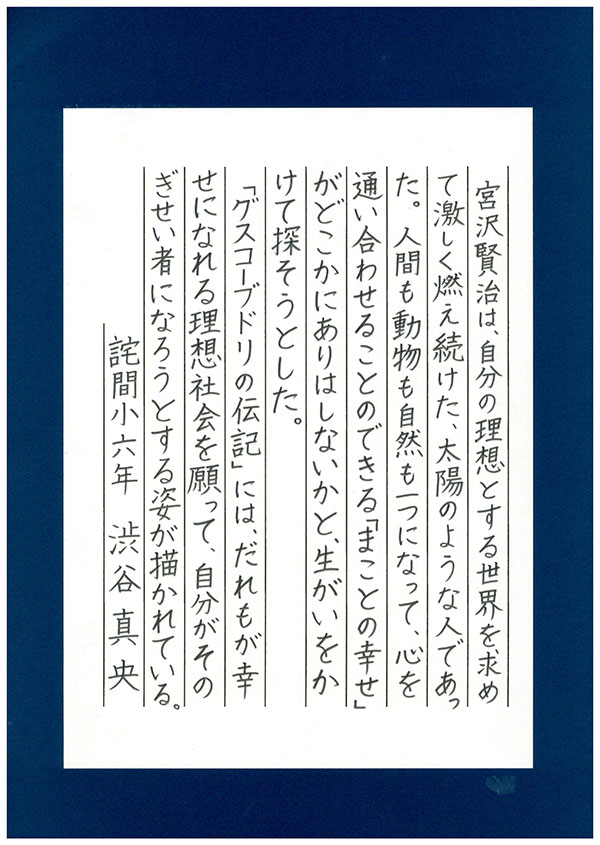 宮沢賢治は、自分の理想とする世界を求め
て激しく燃え続けた、太陽のような人であっ
た。人間も動物も自然も一つになって、心を
通い合わせることのできる「まことの幸せ」
がどこかにありはしないかと、生がいをか
けて探そうとした。
「グスコーブドリの伝記」には、だれもが幸
せになれる理想社会を願って、自分がその
ぎせい者になろうとする姿が描かれている。
詫間小六年 渋谷真央